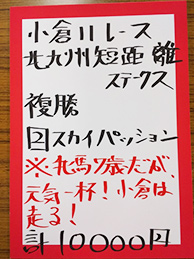 小倉11レース
北九州短距離
ステークス
複勝
2スカイパッション
※牝馬7歳だが、
元気一杯！小倉は
走る！
計10000円